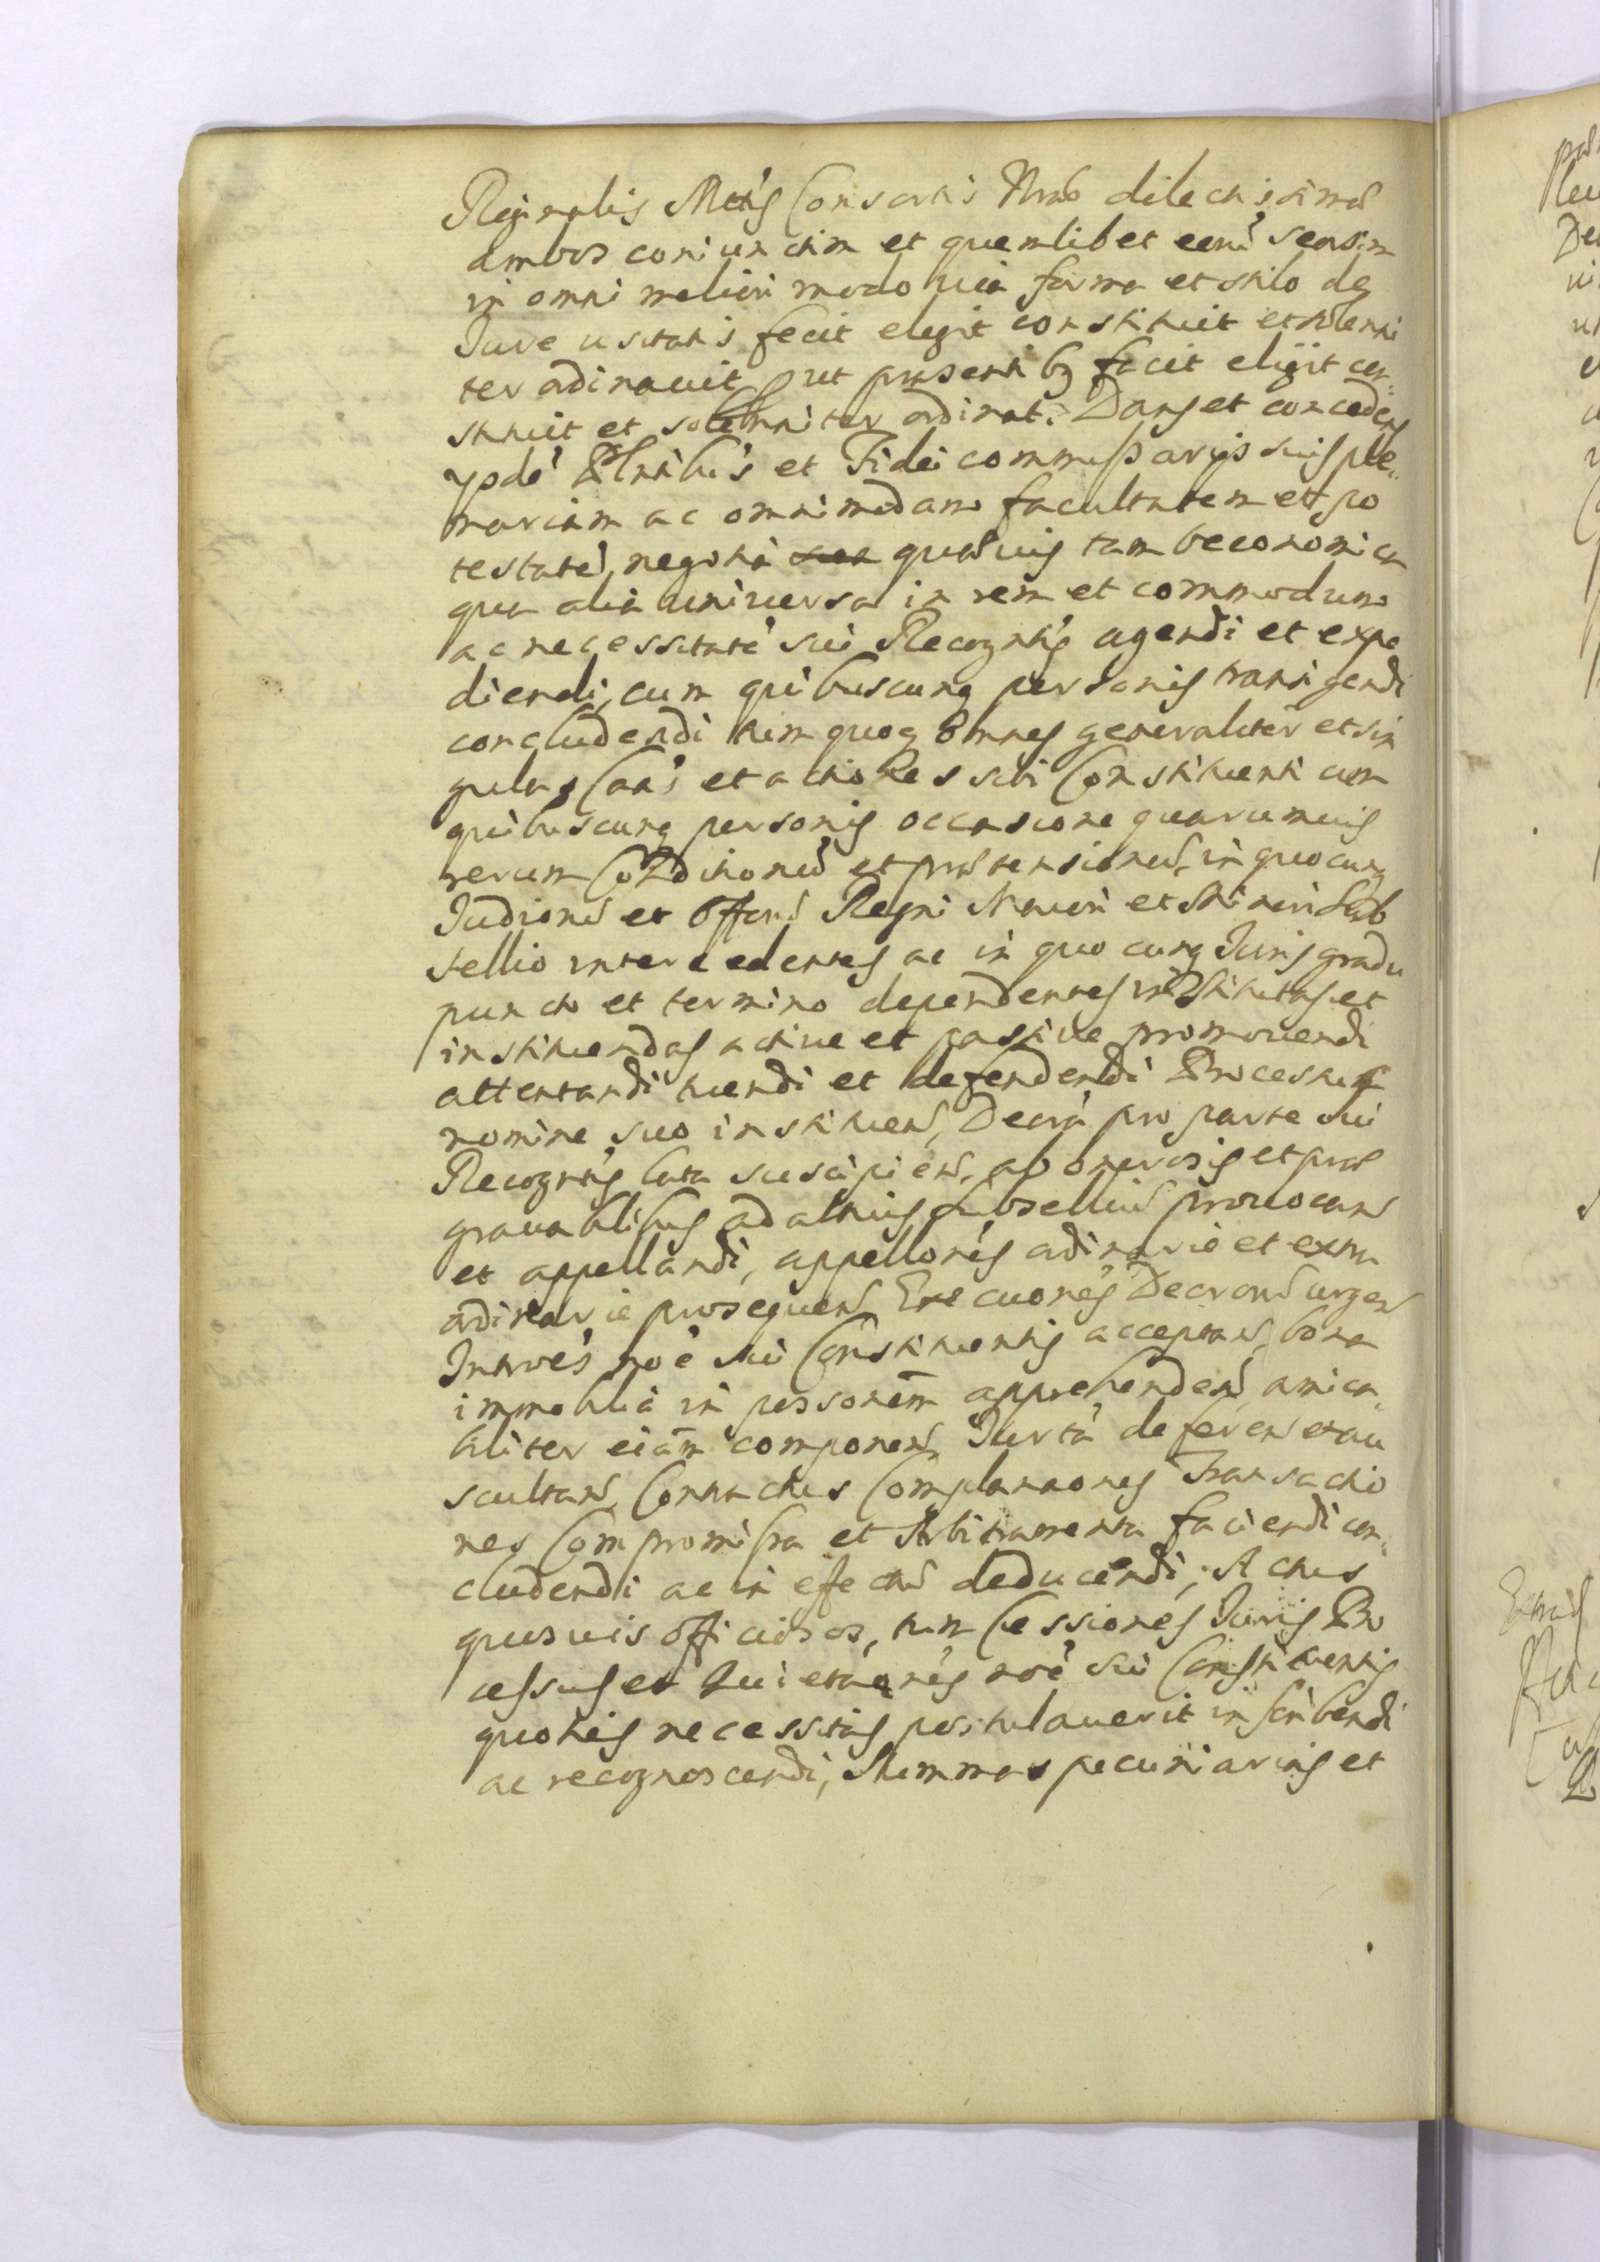 Reginalis Mttis Consortis Nrae dilectissimae
ambos coniunctim et quemlibet eorũ seorsim
in omni meliori modo via forma et stilo de
Jure usitatis fecit elegit constituit et solenni
ter ordinavit, put praesentibq facit eligit con„
stituit et solenniter ordinat. Dans et concedens
ypdẽ Plntibus et Fidei commissarys suis ple„
nariam ac omnimodam facultatem et po
testatẽ, negotia quaevis tam oeconomica
qua alia universa in rem et commodum
ac necessitatẽ sui Recogntis agendi et expe
diendi, cum quibuscunq personis transigendi
concludendi tum quoq omnes generaliter et sin
gulas Cas et actiones sibi Constituenti cum
quibuscunq personis occasione quarumvis
rerum Conditionũ et praetensionũ, in quocunq
Judiorũ et Offorũ Regni M et Sub
sellio intercedentes ac in quocunq Juris gradu
puncto et termino dependentes institutas et
instituendas active et passive promovendi
attentandi tuendi et defendendi Processus
nomine suo instituend, Decra pro parte sui
Recogntis lata suscipiend, ab onerosis et prae
gravabilibus ad altius subselliũ provocand
et appellandi, appellones ordinarie et extra
ordinarie prosequend, Execuones Decrorũ urgend
Introes noe sui Constituentis acceptand, bona
immobilia in possonem apprehendend, amica„
biliter etiam componend, Jurta deferend et au
scultand, Contractus Complanaones Transactio
nes Compromissa et Arbitramenta faciendi con„
cludendi ac in effectũ deducendi, Actus
quosvis officiosos, tum Cessiones Juris Pro
cessus et Quietaones noe sui Constituentis
quoties necessitas postulaverit inscribendi
ac recognoscendi, Summas pecuniarias et